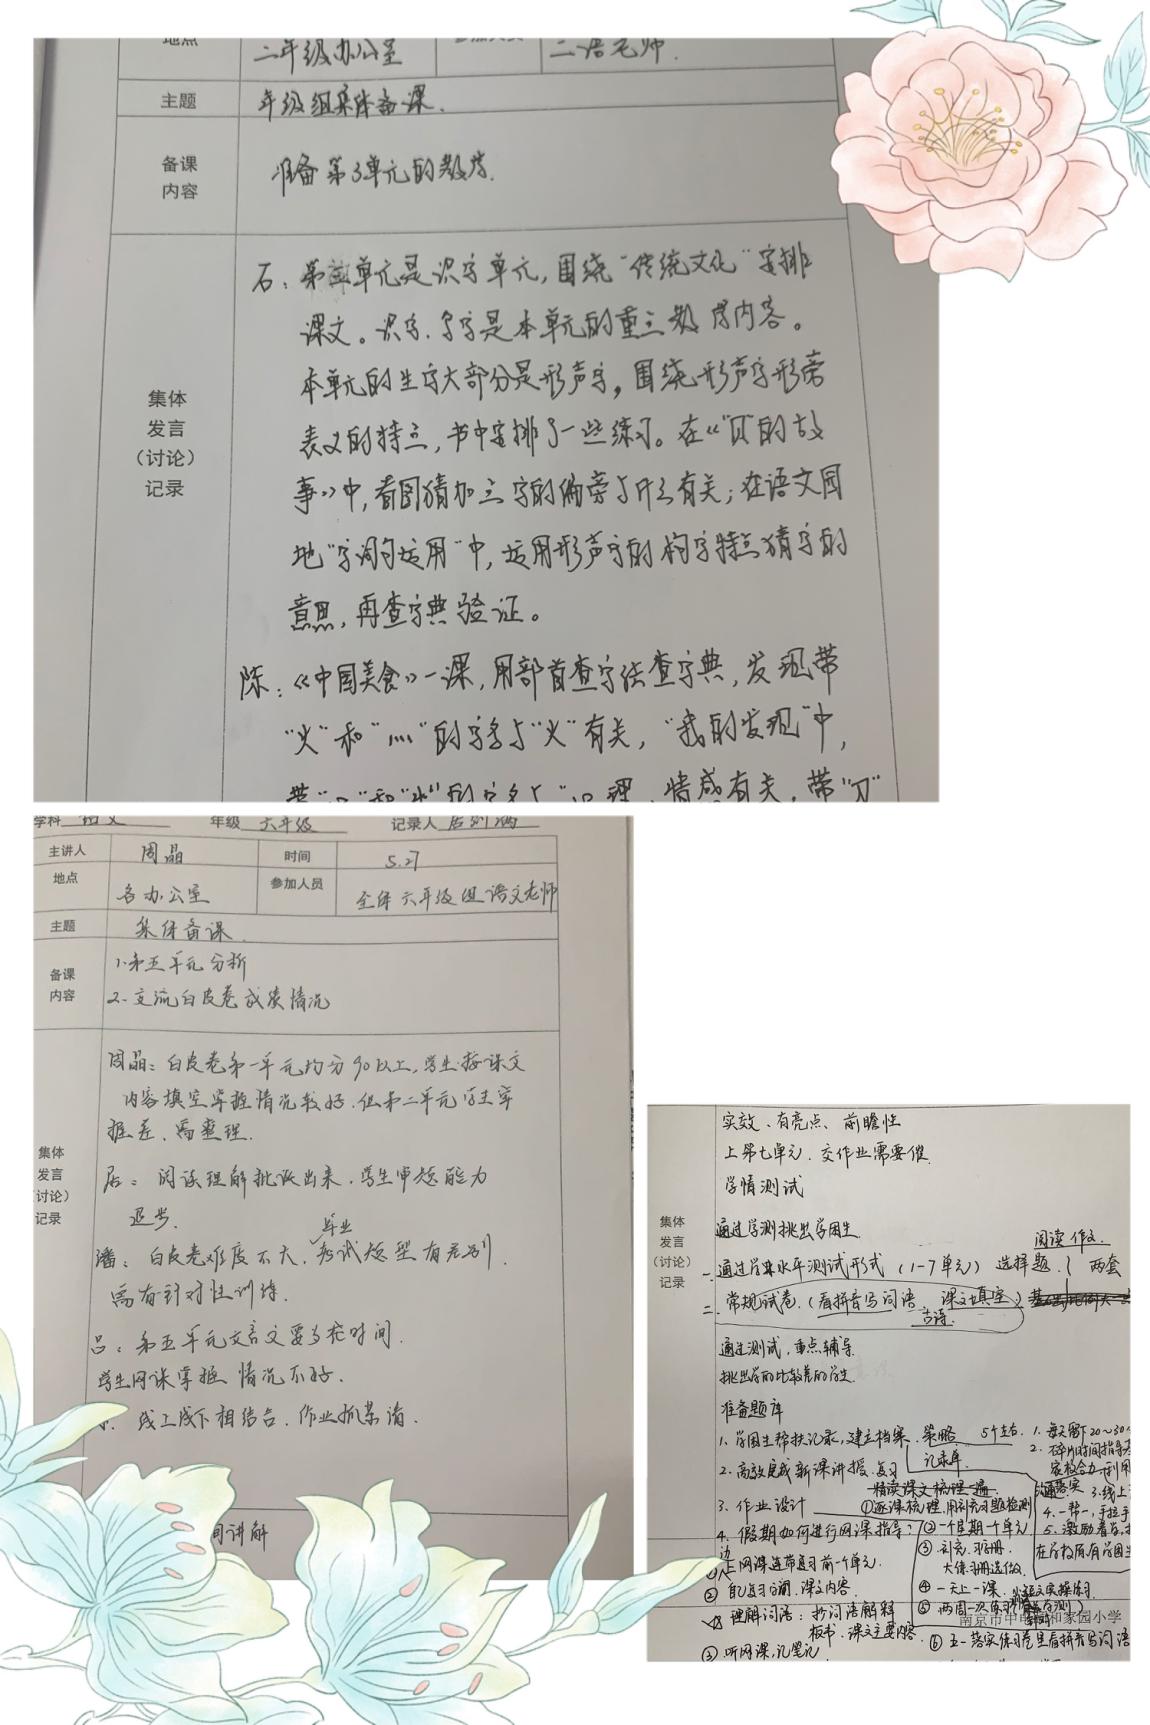 地点
二年级办公室
二语老师.
主题
年级组集体备课.
备课
内容
准备第3单元的教学.
集体
发言
(讨论)
记录
石:第三单元是识字单元,围绕“传统文化”安排
课文。识字、写字是本单元的重点教学内容。
本单元的生字大部分是形声字,围绕形声字形旁
表义的特点,书中安排了一些练习。在《“贝”的故
事》中,看图猜加点字的偏旁与什么有关;在语文园
地“字词句运用”中,运用形声字的构字特点猜字的
意思,再查字典验证。
陈:《中国美食》一课,用部首查字法查字典,发现带
“火”和“灬”的字多与“火”有关,“我的发现”中,
情感有关,带“刀”
学科 语文 年级 六年级 记录人
主讲人 周晶 时间 5.27
地点 各办公室 参加人员 全体六年级组语文老师
主题 集体备课.
备课
内容
1.第五单元分析
2.交流白皮卷成绩情况
集体
发言
(讨论)
记录
周晶:白皮卷第一单元均分90以上,学生按课文
内容填空掌握情况较好.但第二单元学生掌
握差、需整理.
居:阅读理解批改出来,学生审题能力
退步.
潘:白皮卷难度不大,毕业考试题型有差别
需有针对性训练.
吕:第五单元文言文要多花时间.
学生网课掌握情况不好.
线上线下相结合.作业抓紧清.
间讲解
实效、有亮点、前瞻性
上第七单元.交作业需要催.
学情测试
集体
发言
(讨论)
记录
通过学测挑出学困生
阅读 作文.
一.通过学业水平测试形式(1-7单元)选择题. 两套
二.常规试卷.(看拼音写词语、课文填空.)
古诗.
通过测试,重点辅导.
挑出学的比较差的学生.
准备题库
1、学困生帮扶记录,建立档案.策略 5个左右.
记录单.
1.每天留下20~30
2.碎片时间指导
家校合力
2.高效完成新课讲授.复习
精读课文梳理一遍.
3.线上
3.作业设计 ①逐课梳理.用补充习题检测
4.一帮一,手拉手
4.假期如何进行网课指导? ②一个星期一个单元
5.激励着学.
①边上网课边带复习前一个单元. ③补充习题册.
大练习册选做.
②自己复习字词.课文内容. ④一天上一课.
理解词语:抄词语解释 ⑤两周一次练习
板书.课文主要内容.
南京市中电颐和家园小学
③听网课,记笔记 ⑥五一落实练习卷里看拼音写词语